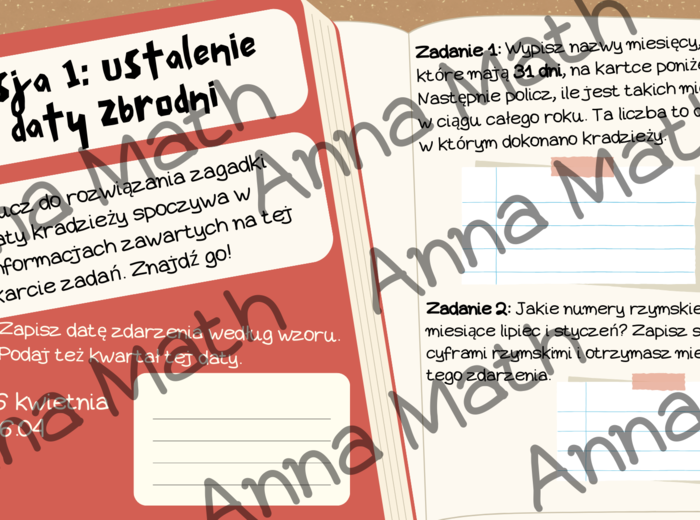 sja 1: ustalenie
daty zbrodni
ucz do rozwiązania zagadki
aty kradzieży spoczywa w
nformacjach zawartych na tej
karcie zadań. Znajdź go!
Zapisz datę zdarzenia według wzoru.
Podaj też kwartał tej daty.
6 kwietnia
6.04
Zadanie 1: Wypisz nazwy miesięcy,
które mają 31 dni, na kartce poniże
Następnie policz, ile jest takich mie
w ciągu całego roku. Ta liczba to d
w którym dokonano kradzieży.
Zadanie 2: Jakie numery rzymskie
miesiące lipiec i styczeń? Zapisz s
cyframi rzymskimi i otrzymasz mie
tego zdarzenia.
Anna Math
Anna Math
Anna Math
Anna Math
Anna Math
Anna